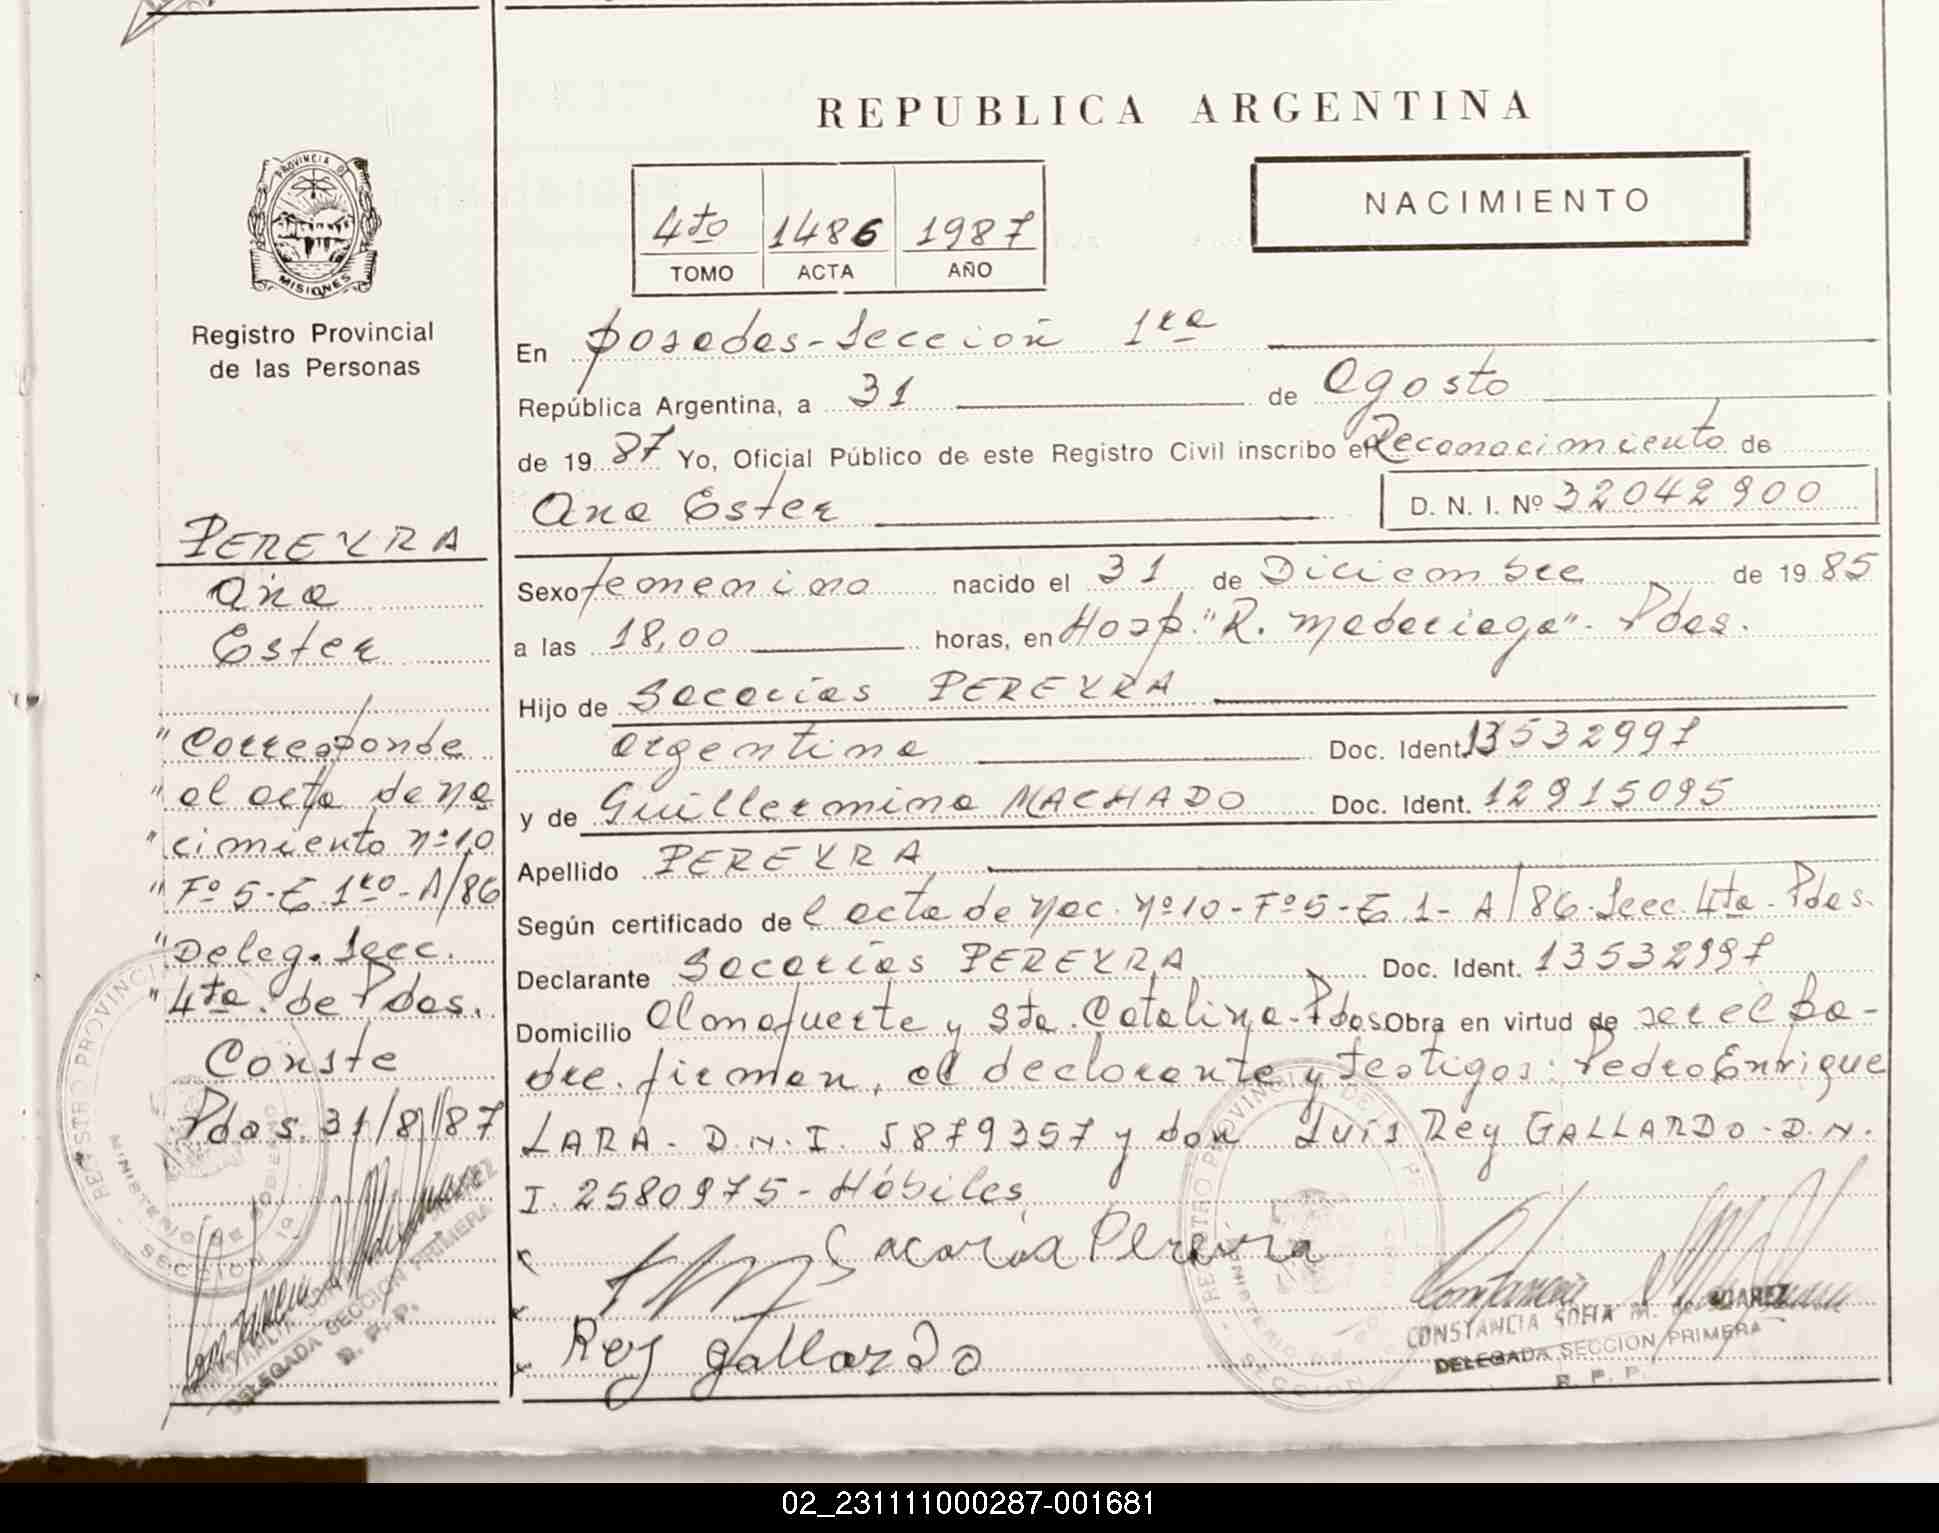 REPUBLICA ARGENTINA
PROVINCIA DE
MISIONES
Registro Provincial
de las Personas
4to 1486 1987
TOMO ACTA AÑO
NACIMIENTO
En Posadas - Sección 1ra
República Argentina, a 31 de Agosto
de 1987 Yo, Oficial Público de este Registro Civil inscribo el Reconocimiento de
Ana Ester D. N. I. Nº 32042900
Sexo femenino nacido el 31 de Diciembre de 1985
a las 18,00 horas, en Hosp. "R. Madariaga". Pdas.
Hijo de Sacarías PEREYRA
argentina Doc. Ident. 13532997
y de Guillermina MACHADO Doc. Ident. 12915095
Apellido PEREYRA
Según certificado del acta de Nac. Nº 10 - Fº 5 - T. 1 - A/86. Secc. 4ta - Pdas.
Declarante Sacarías PEREYRA Doc. Ident. 13532997
Domicilio Almafuerte y Sta. Catalina - Pdas Obra en virtud de ser el pa-
dre. firman, el declarante y testigos: Pedro Enrique
LARA - D.N.I. 5879357 y don Luis Rey GALLARDO - D.N.
I. 2580975 - Hábiles
Sacaria Pereira
Rey gallardo
CONSTANCIA SOFIA M. de SUAREZ
DELEGADA SECCION PRIMERA
R. P. P.
PEREYRA
Ana
Ester
"Corresponde
"al acta de Na
"cimiento nº 10
"Fº 5 - T. 1ro - A/86
"Deleg. Secc.
"4ta. de Pdas.
Conste
Pdas. 31/8/87
DELEGADA SECCION PRIMERA
R. P. P.
02_231111000287-001681